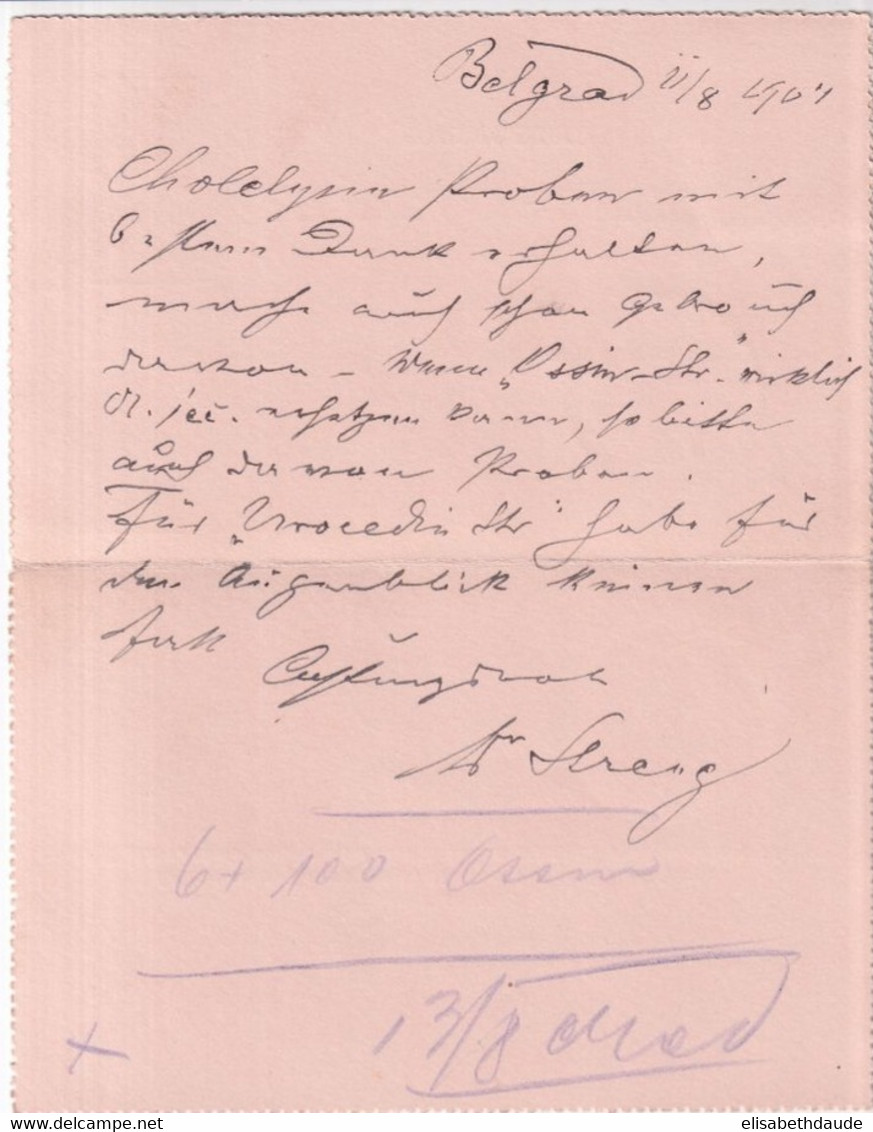 Belgrad 11/8 1904
Cholelysin Proben mit
bestem Dank erhalten,
mache auch schon Gebrauch
davon – wenn „Ossin-Str." wirklich
Ol. jec. ersetzen kann, so bitte
auch davon Proben.
Für „Urocedin Str" habe für
den Augenblick keinen
Fall
Achtungsvoll
Dr Streng
6 + 100 Ossin
13/8
elisabethdaude